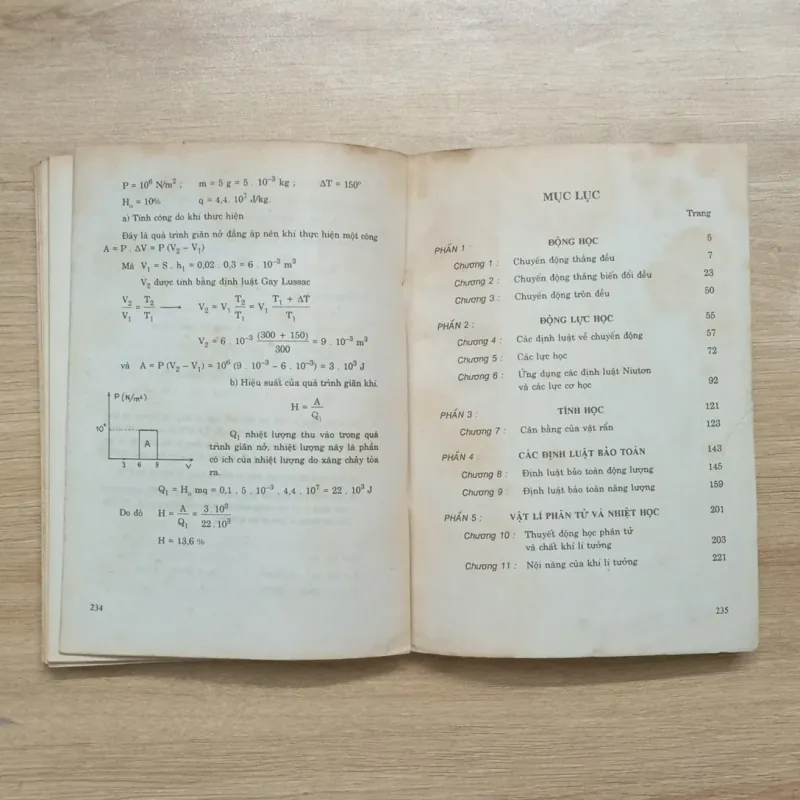 P = 10⁶ N/m² ; m = 5 g = 5 . 10⁻³ kg ; ΔT = 150°
Hₒ = 10% q = 4,4. 10⁷ J/kg.
a) Tính công do khí thực hiện
Đây là quá trình giãn nở đẳng áp nên khí thực hiện một công
A = P . ΔV = P (V₂ − V₁)
Mà V₁ = S . h₁ = 0,02 . 0,3 = 6 . 10⁻³ m³
V₂ được tính bằng định luật Gay Lussac
V₂/V₁ = T₂/T₁ ⟶ V₂ = V₁ T₂/T₁ = V₁ (T₁ + ΔT)/T₁
V₂ = 6 . 10⁻³ (300 + 150)/300 = 9 . 10⁻³ m³
và A = P (V₂ − V₁) = 10⁶ (9 . 10⁻³ − 6 . 10⁻³) = 3 . 10³ J
b) Hiệu suất của quá trình giãn khí.
P (N/m²)
10⁶
A
3 6 9 V
H = A/Q₁
Q₁ nhiệt lượng thu vào trong quá
trình giãn nở, nhiệt lượng này là phần
có ích của nhiệt lượng do xăng cháy tỏa
ra.
Q₁ = Hₒ mq = 0,1 . 5 . 10⁻³ . 4,4 . 10⁷ = 22 . 10³ J
Do đó H = A/Q₁ = 3.10³/22.10³
H = 13,6 %
234
MỤC LỤC
Trang
PHẦN 1 : ĐỘNG HỌC 5
Chương 1 : Chuyển động thẳng đều 7
Chương 2 : Chuyển động thẳng biến đổi đều 23
Chương 3 : Chuyển động tròn đều 50
PHẦN 2 : ĐỘNG LỰC HỌC 55
Chương 4 : Các định luật về chuyển động 57
Chương 5 : Các lực học 72
Chương 6 : Ứng dụng các định luật Niutơn
và các lực cơ học 92
PHẦN 3 : TĨNH HỌC 121
Chương 7 : Cân bằng của vật rắn 123
PHẦN 4 : CÁC ĐỊNH LUẬT BẢO TOÀN 143
Chương 8 : Định luật bảo toàn động lượng 145
Chương 9 : Định luật bảo toàn năng lượng 159
PHẦN 5 : VẬT LÍ PHÂN TỬ VÀ NHIỆT HỌC 201
Chương 10 : Thuyết động học phân tử
và chất khí lí tưởng 203
Chương 11 : Nội năng của khí lí tưởng 221
235